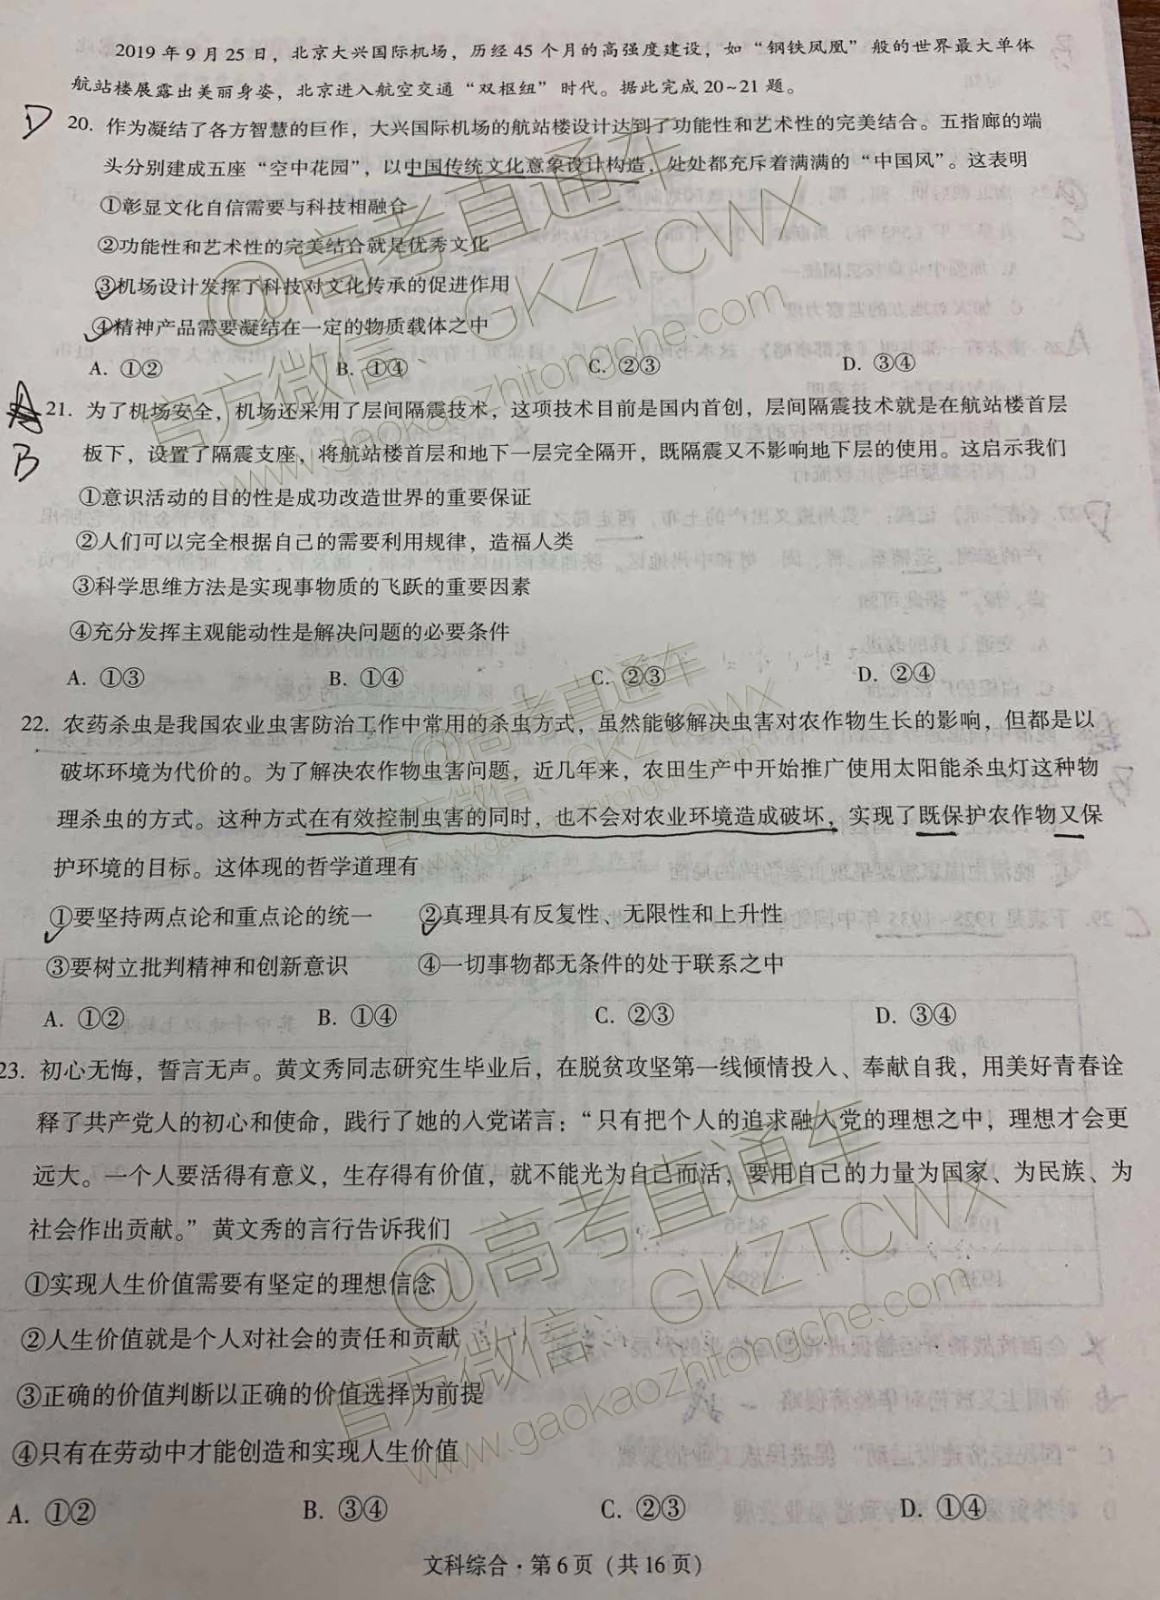 2019年9月25日，北京大兴国际机场，历经45个月的高强度建设，如“钢铁凤凰”般的世界最大单体
航站楼展露出美丽身姿，北京进入航空交通“双枢纽”时代。据此完成20~21题。
D
20. 作为凝结了各方智慧的巨作，大兴国际机场的航站楼设计达到了功能性和艺术性的完美结合。五指廊的端
头分别建成五座“空中花园”，以中国传统文化意象设计构造，处处都充斥着满满的“中国风”。这表明
①彰显文化自信需要与科技相融合
②功能性和艺术性的完美结合就是优秀文化
③机场设计发挥了科技对文化传承的促进作用
④精神产品需要凝结在一定的物质载体之中
A. ①② B. ①④ C. ②③ D. ③④
B
21. 为了机场安全，机场还采用了层间隔震技术，这项技术目前是国内首创，层间隔震技术就是在航站楼首层
板下，设置了隔震支座，将航站楼首层和地下一层完全隔开，既隔震又不影响地下层的使用。这启示我们
①意识活动的目的性是成功改造世界的重要保证
②人们可以完全根据自己的需要利用规律，造福人类
③科学思维方法是实现事物质的飞跃的重要因素
④充分发挥主观能动性是解决问题的必要条件
A. ①③ B. ①④ C. ②③ D. ②④
22. 农药杀虫是我国农业虫害防治工作中常用的杀虫方式，虽然能够解决虫害对农作物生长的影响，但都是以
破坏环境为代价的。为了解决农作物虫害问题，近几年来，农田生产中开始推广使用太阳能杀虫灯这种物
理杀虫的方式。这种方式在有效控制虫害的同时，也不会对农业环境造成破坏，实现了既保护农作物又保
护环境的目标。这体现的哲学道理有
①要坚持两点论和重点论的统一 ②真理具有反复性、无限性和上升性
③要树立批判精神和创新意识 ④一切事物都无条件的处于联系之中
A. ①② B. ①④ C. ②③ D. ③④
23. 初心无悔，誓言无声。黄文秀同志研究生毕业后，在脱贫攻坚第一线倾情投入、奉献自我，用美好青春诠
释了共产党人的初心和使命，践行了她的入党诺言：“只有把个人的追求融入党的理想之中，理想才会更
远大。一个人要活得有意义，生存得有价值，就不能光为自己而活，要用自己的力量为国家、为民族、为
社会作出贡献。”黄文秀的言行告诉我们
①实现人生价值需要有坚定的理想信念
②人生价值就是个人对社会的责任和贡献
③正确的价值判断以正确的价值选择为前提
④只有在劳动中才能创造和实现人生价值
A. ①② B. ③④ C. ②③ D. ①④
文科综合·第6页（共16页）
@高考直通车
官方微信、GKZTCWX
www.gaokaozhitongche.com
@高考直通车
官方微信、GKZTCWX
www.gaokaozhitongche.com
@高考直通车
官方微信、GKZTCWX
www.gaokaozhitongche.com